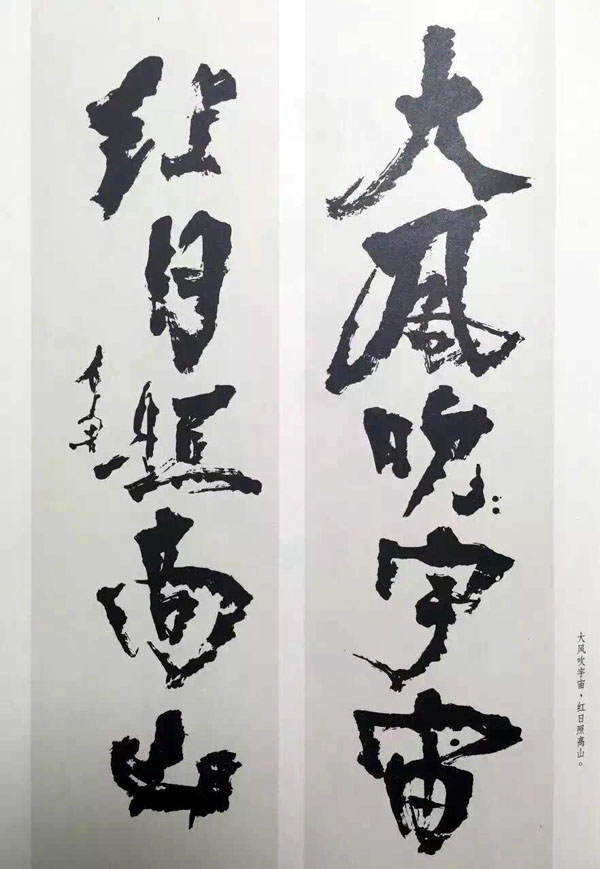 大风吹宇宙
红日照高山
大风吹宇宙，红日照高山。